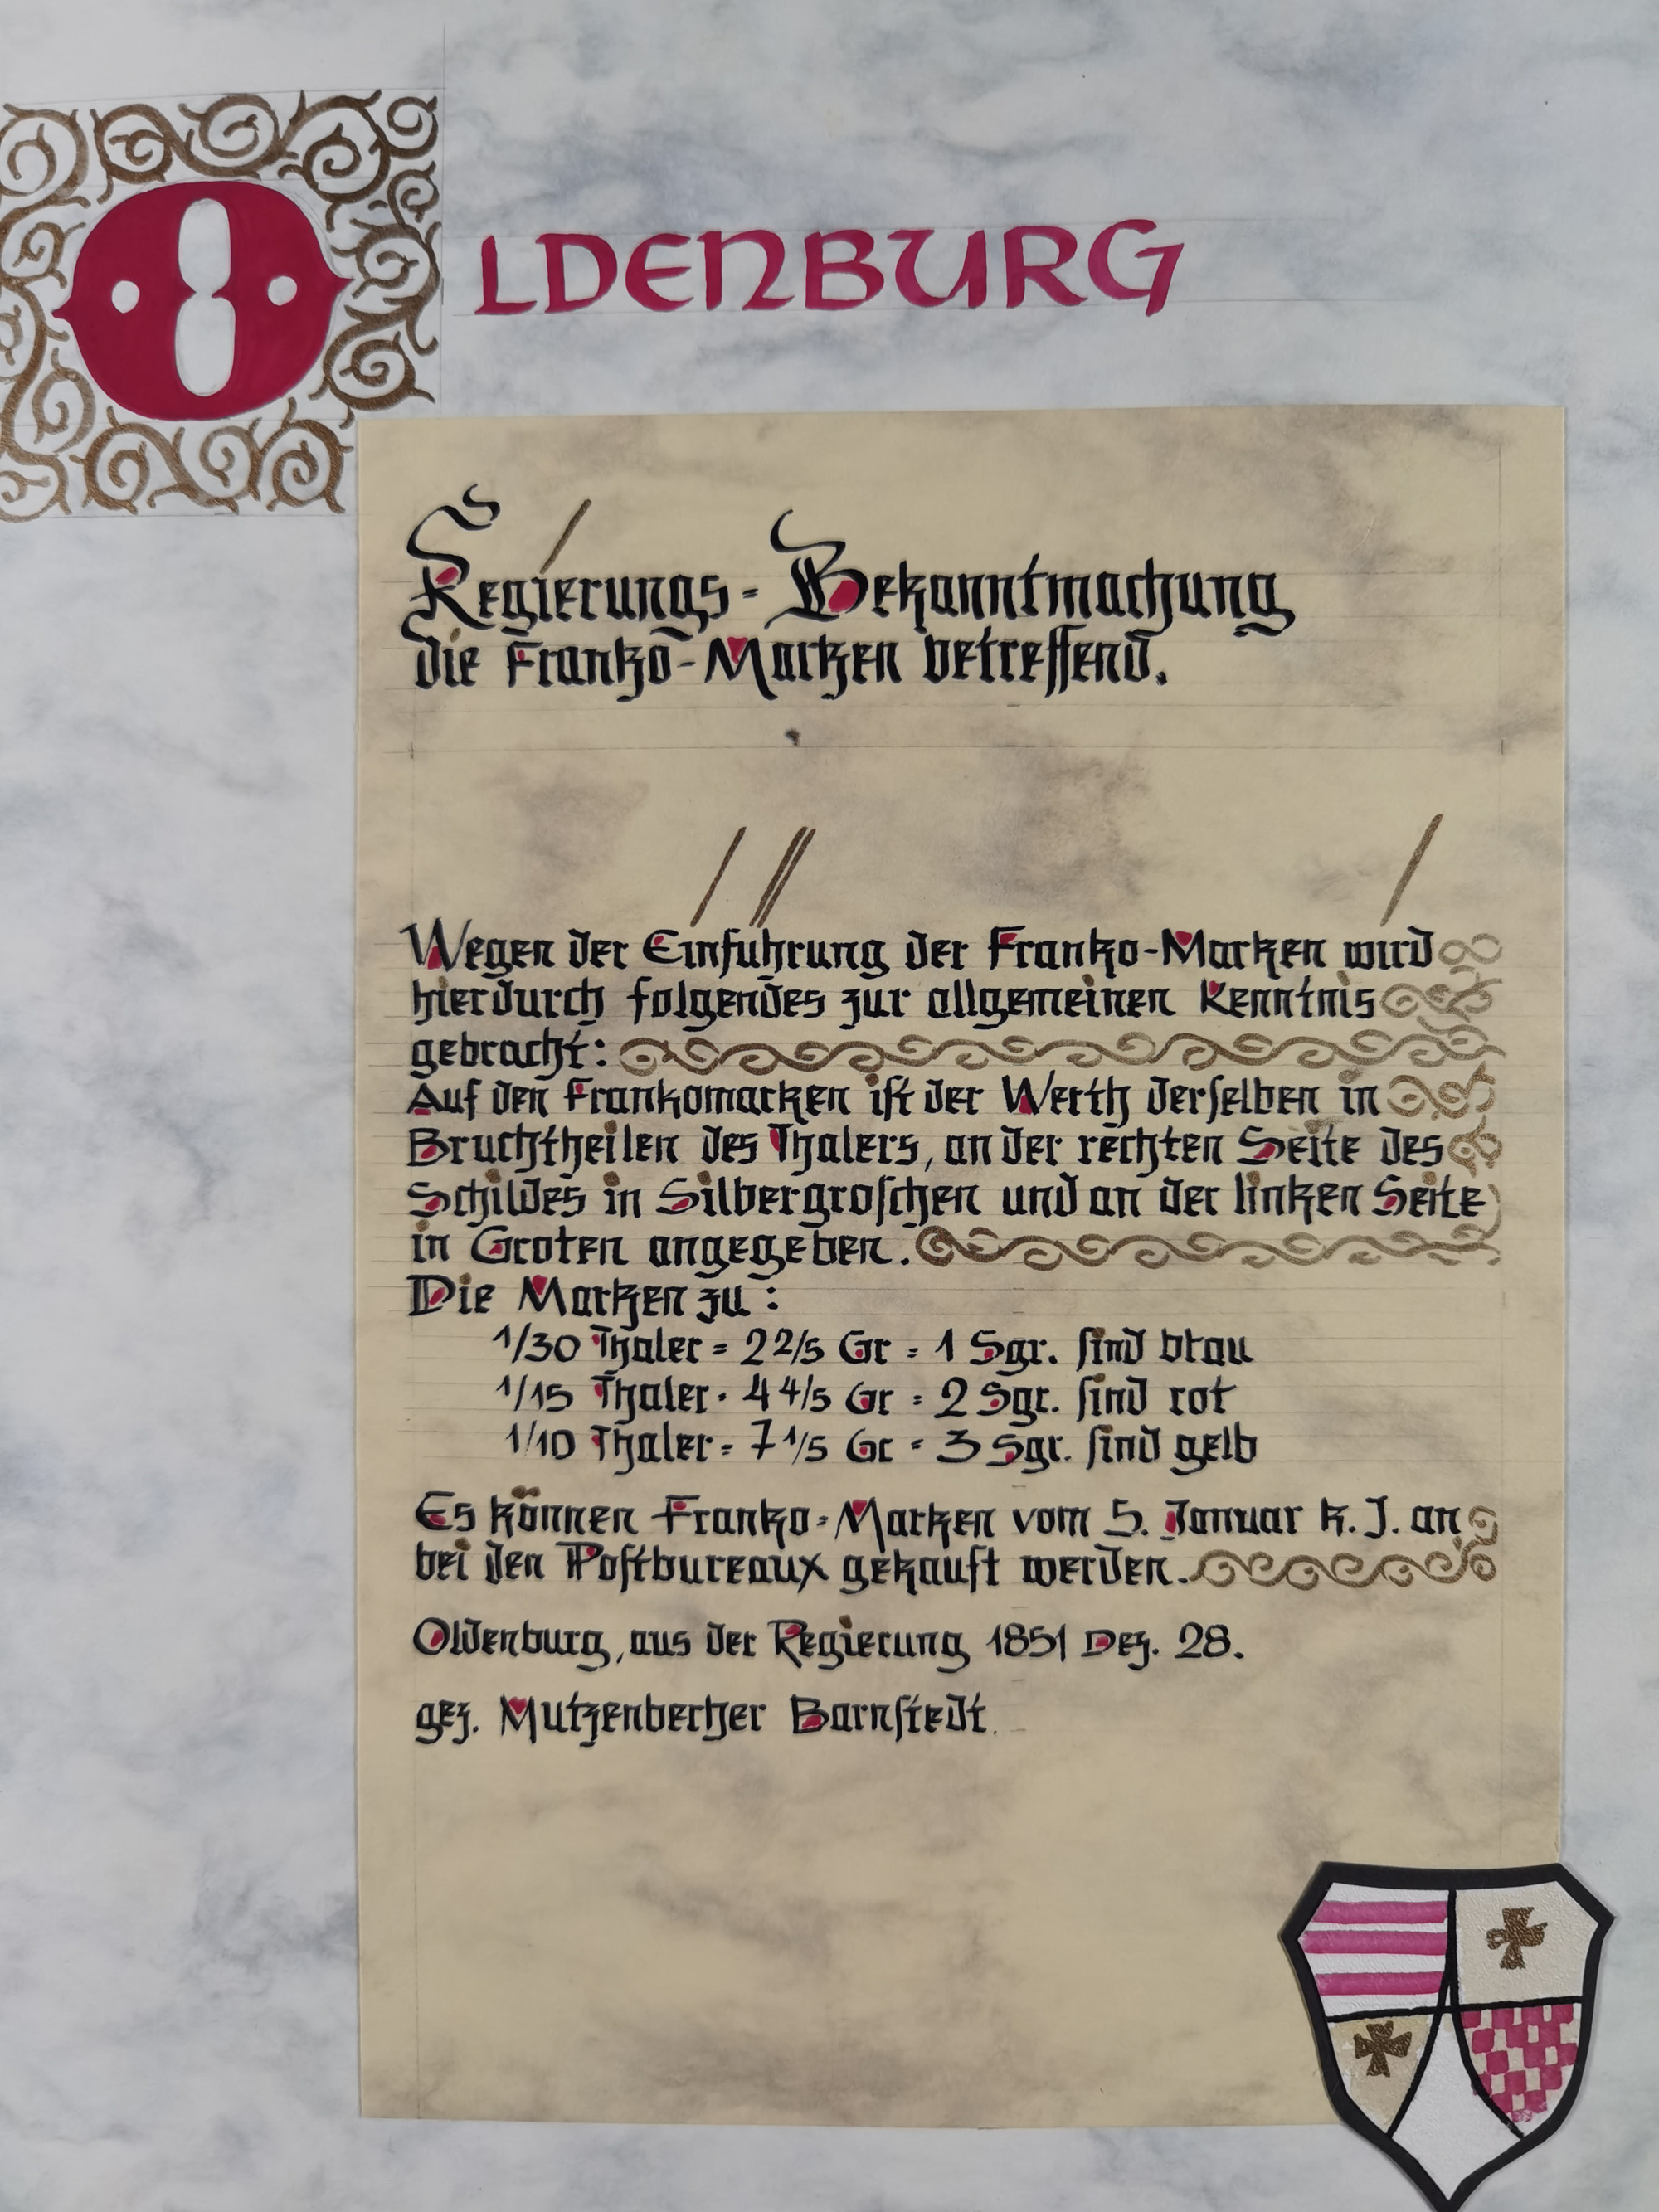 OLDENBURG
Regierungs-Bekanntmachung
die Franko-Marken betreffend.
Wegen der Einführung der Franko-Marken wird
hierdurch folgendes zur allgemeinen Kenntnis
gebracht:
Auf den Frankomarken ist der Werth derselben in
Bruchtheilen des Thalers, an der rechten Seite des
Schildes in Silbergroschen und an der linken Seite
in Groten angegeben.
Die Marken zu:
1/30 Thaler = 2 2/5 Gr = 1 Sgr. sind blau
1/15 Thaler = 4 4/5 Gr = 2 Sgr. sind rot
1/10 Thaler = 7 1/5 Gr = 3 Sgr. sind gelb
Es können Franko-Marken vom 5. Januar k. J. an
bei den Postbureaux gekauft werden.
Oldenburg, aus der Regierung 1851 Dez. 28.
gez. Mutzenbecher Barnstedt.